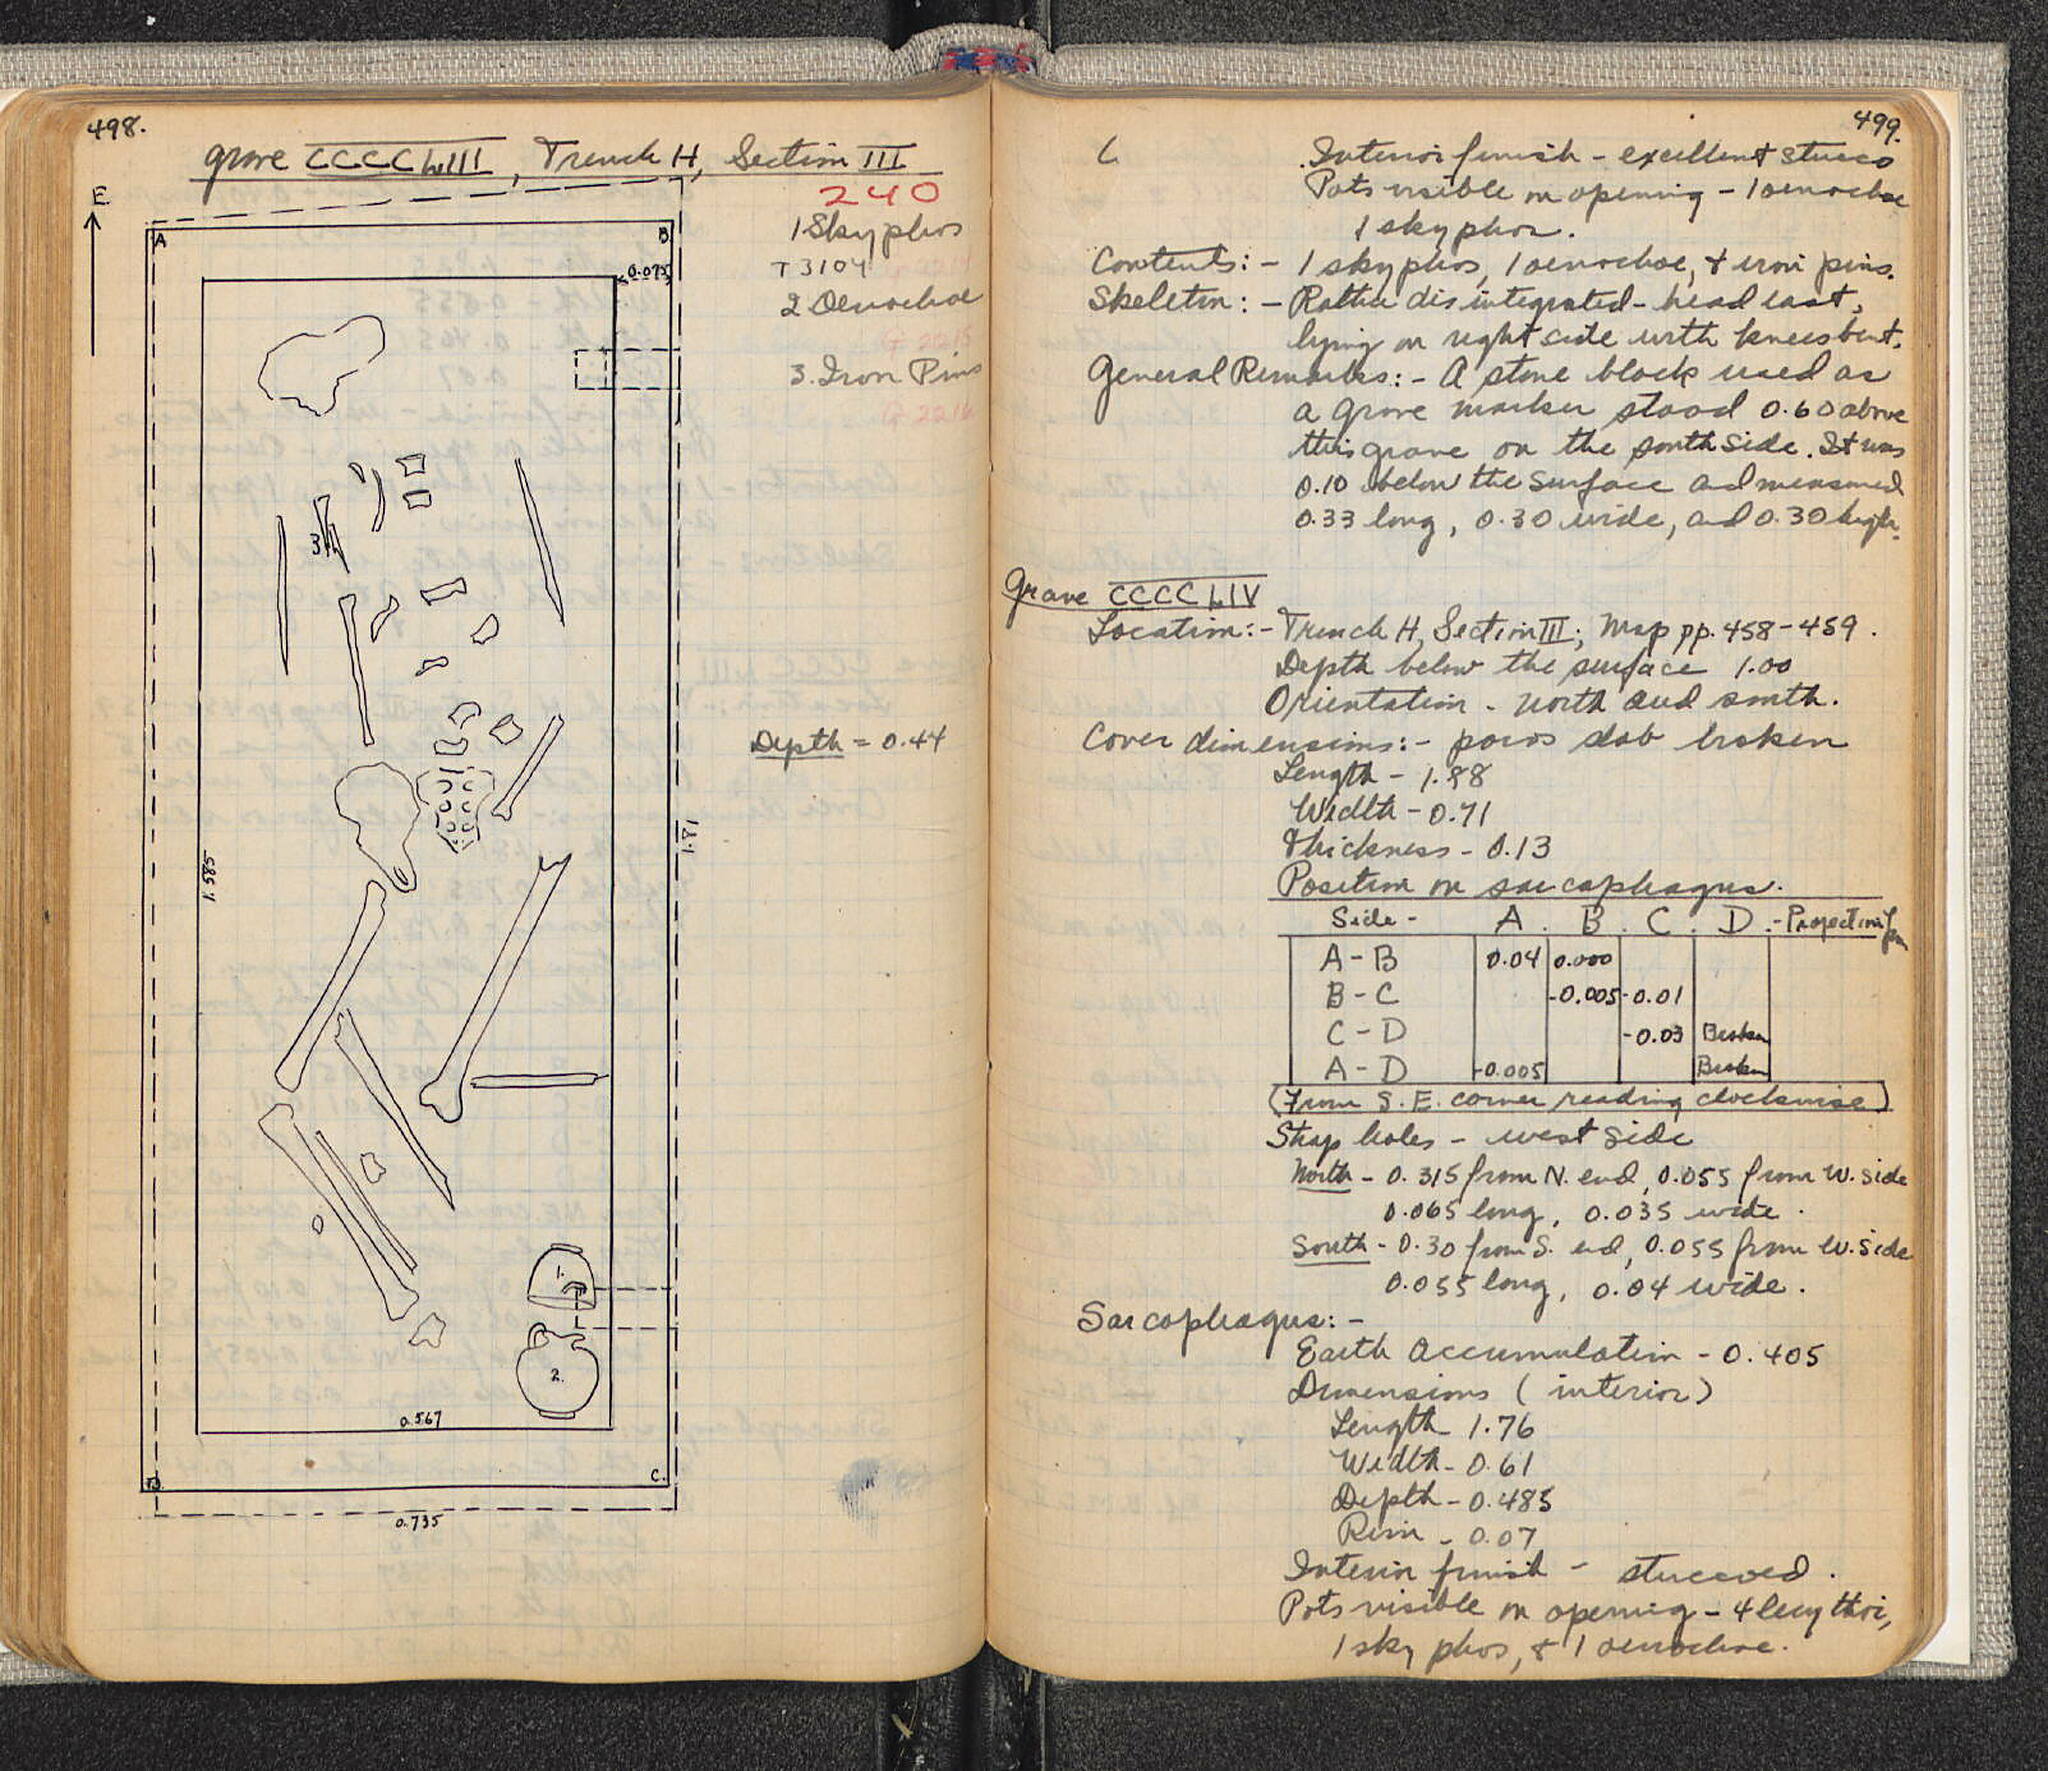 498.
Grave CCCCLIII, Trench H, Section III
240
E.
A
B
0.075
1 Skyphos
T 3104
2 Oenochoe
G 2215
3. Iron Pins
G 2216
3
Depth = 0.44
1.81
1.585
1.
2.
0.567
D.
C.
0.735
499.
Interior finish - excellent stucco
Pots visible on opening - 1 oenochoe
1 skyphos.
Contents: - 1 skyphos, 1 oenochoe, & iron pins.
Skeleton: - Rather disintegrated - head east,
lying on right side with knees bent.
General Remarks: - A stone block used as
a grave marker stood 0.60 above
this grave on the south side. It was
0.10 below the surface and measured
0.33 long, 0.30 wide, and 0.30 high.
Grave CCCCLIV
Location: - Trench H, Section III; Map pp. 458-459.
Depth below the surface 1.00
Orientation - north and south.
Cover dimensions: - poros slab broken
Length - 1.88
Width - 0.71
Thickness - 0.13
Position on sarcophagus.
Side - A. B. C. D. - Projection from
A-B 0.04 0.000
B-C -0.005 -0.01
C-D -0.03 Broken
A-D -0.005 Broken
(From S.E. corner reading clockwise)
Strap holes - west side
North - 0.315 from N. end, 0.055 from W. side
0.065 long, 0.035 wide.
South - 0.30 from S. end, 0.055 from W. side
0.055 long, 0.04 wide.
Sarcophagus: -
Earth Accumulation - 0.405
Dimensions (interior)
Length 1.76
Width - 0.61
Depth - 0.485
Rim - 0.07
Interior finish - stuccoed.
Pots visible on opening - 4 lecythoi,
1 skyphos, & 1 oenochoe.